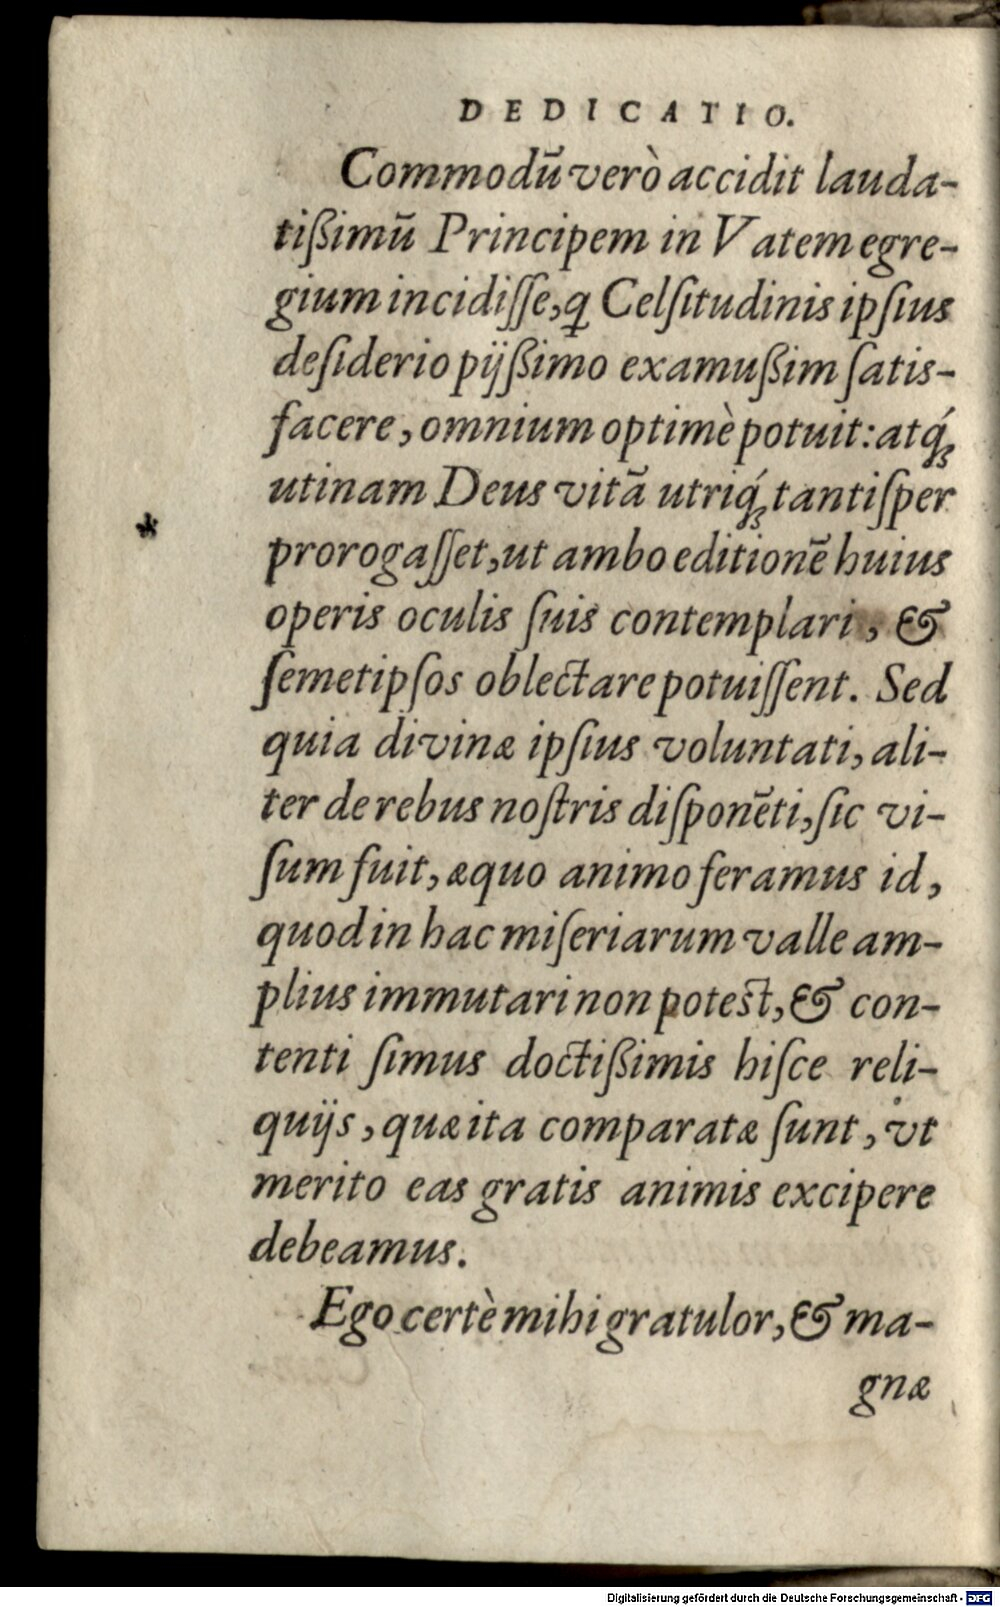 DEDICATIO.
Commodū verò accidit lauda-
tißimū Principem in Vatem egre-
gium incidiſſe, ꝗ Celſitudinis ipſius
deſiderio pijßimo examußim ſatis-
facere, omnium optimè potuit: atq́ꝫ
utinam Deus vitā utriq́ꝫ tantiſper
prorogaſſet, ut ambo editionē huius
operis oculis ſuis contemplari, &
ſemetipſos oblectare potuiſſent. Sed
quia divinæ ipſius voluntati, ali-
ter de rebus noſtris diſponēti, ſic vi-
ſum fuit, æquo animo feramus id,
quod in hac miſeriarum valle am-
plius immutari non potest, & con-
tenti ſimus doctißimis hiſce reli-
quijs, quæ ita comparatæ ſunt, vt
merito eas gratis animis excipere
debeamus.
Ego certè mihi gratulor, & ma-
gnæ
Digitalisierung gefördert durch die Deutsche Forschungsgemeinschaft - DFG